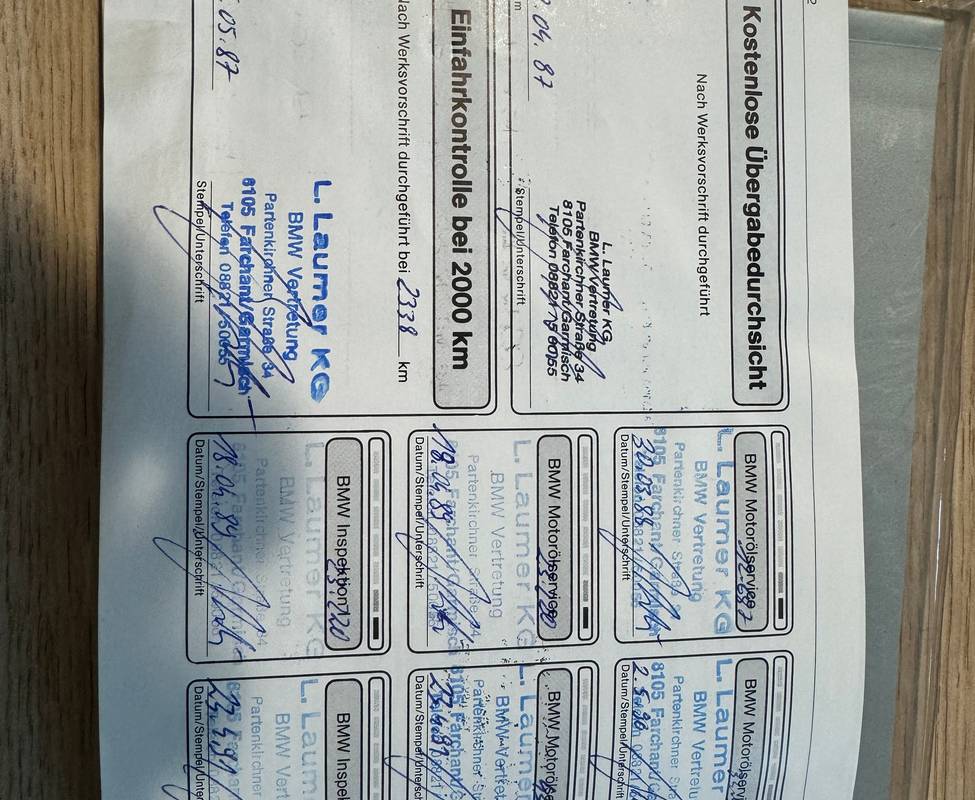 Kostenlose Übergabedurchsicht
Nach Werksvorschrift durchgeführt
04. 87
L. Laumer KG
BMW Vertretung
Partenkirchner Straße 34
8105 Farchant/Garmisch
Telefon 08821/
Stempel/Unterschrift
Einfahrkontrolle bei 2000 km
Nach Werksvorschrift durchgeführt bei 2338 km
05. 87
L. Laumer KG
BMW Vertretung
Partenkirchner Straße 34
8105 Farchant/Garmisch
Telefon 08821/
Stempel/Unterschrift
BMW Motorölservice
L. Laumer KG
BMW Vertretung
Partenkirchner Straße
8105 Farchant/Garmisch
30.03.88
Datum/Stempel/Unterschrift
BMW Motorölservice
L. Laumer KG
BMW Vertretung
Partenkirchner Straße 34
Farchant
18.04.89
Datum/Stempel/Unterschrift
BMW Inspektion
L. Laumer KG
BMW Vertretung
Partenkirchner Straße 34
18.04.89
Datum/Stempel/Unterschrift
BMW Motorölservi
L. Laumer
BMW Vertretu
Partenkirchner
8105 Farchant
Datum/Stempel/Unter
BMW Motorölse
L. Laumer
BMW Vertret
Partenkirchner
8105 Farchant
Datum/Stempel/Unter
BMW Inspek
L. Laum
BMW Vert
Partenkirchner
Datum/Stempel/Unter